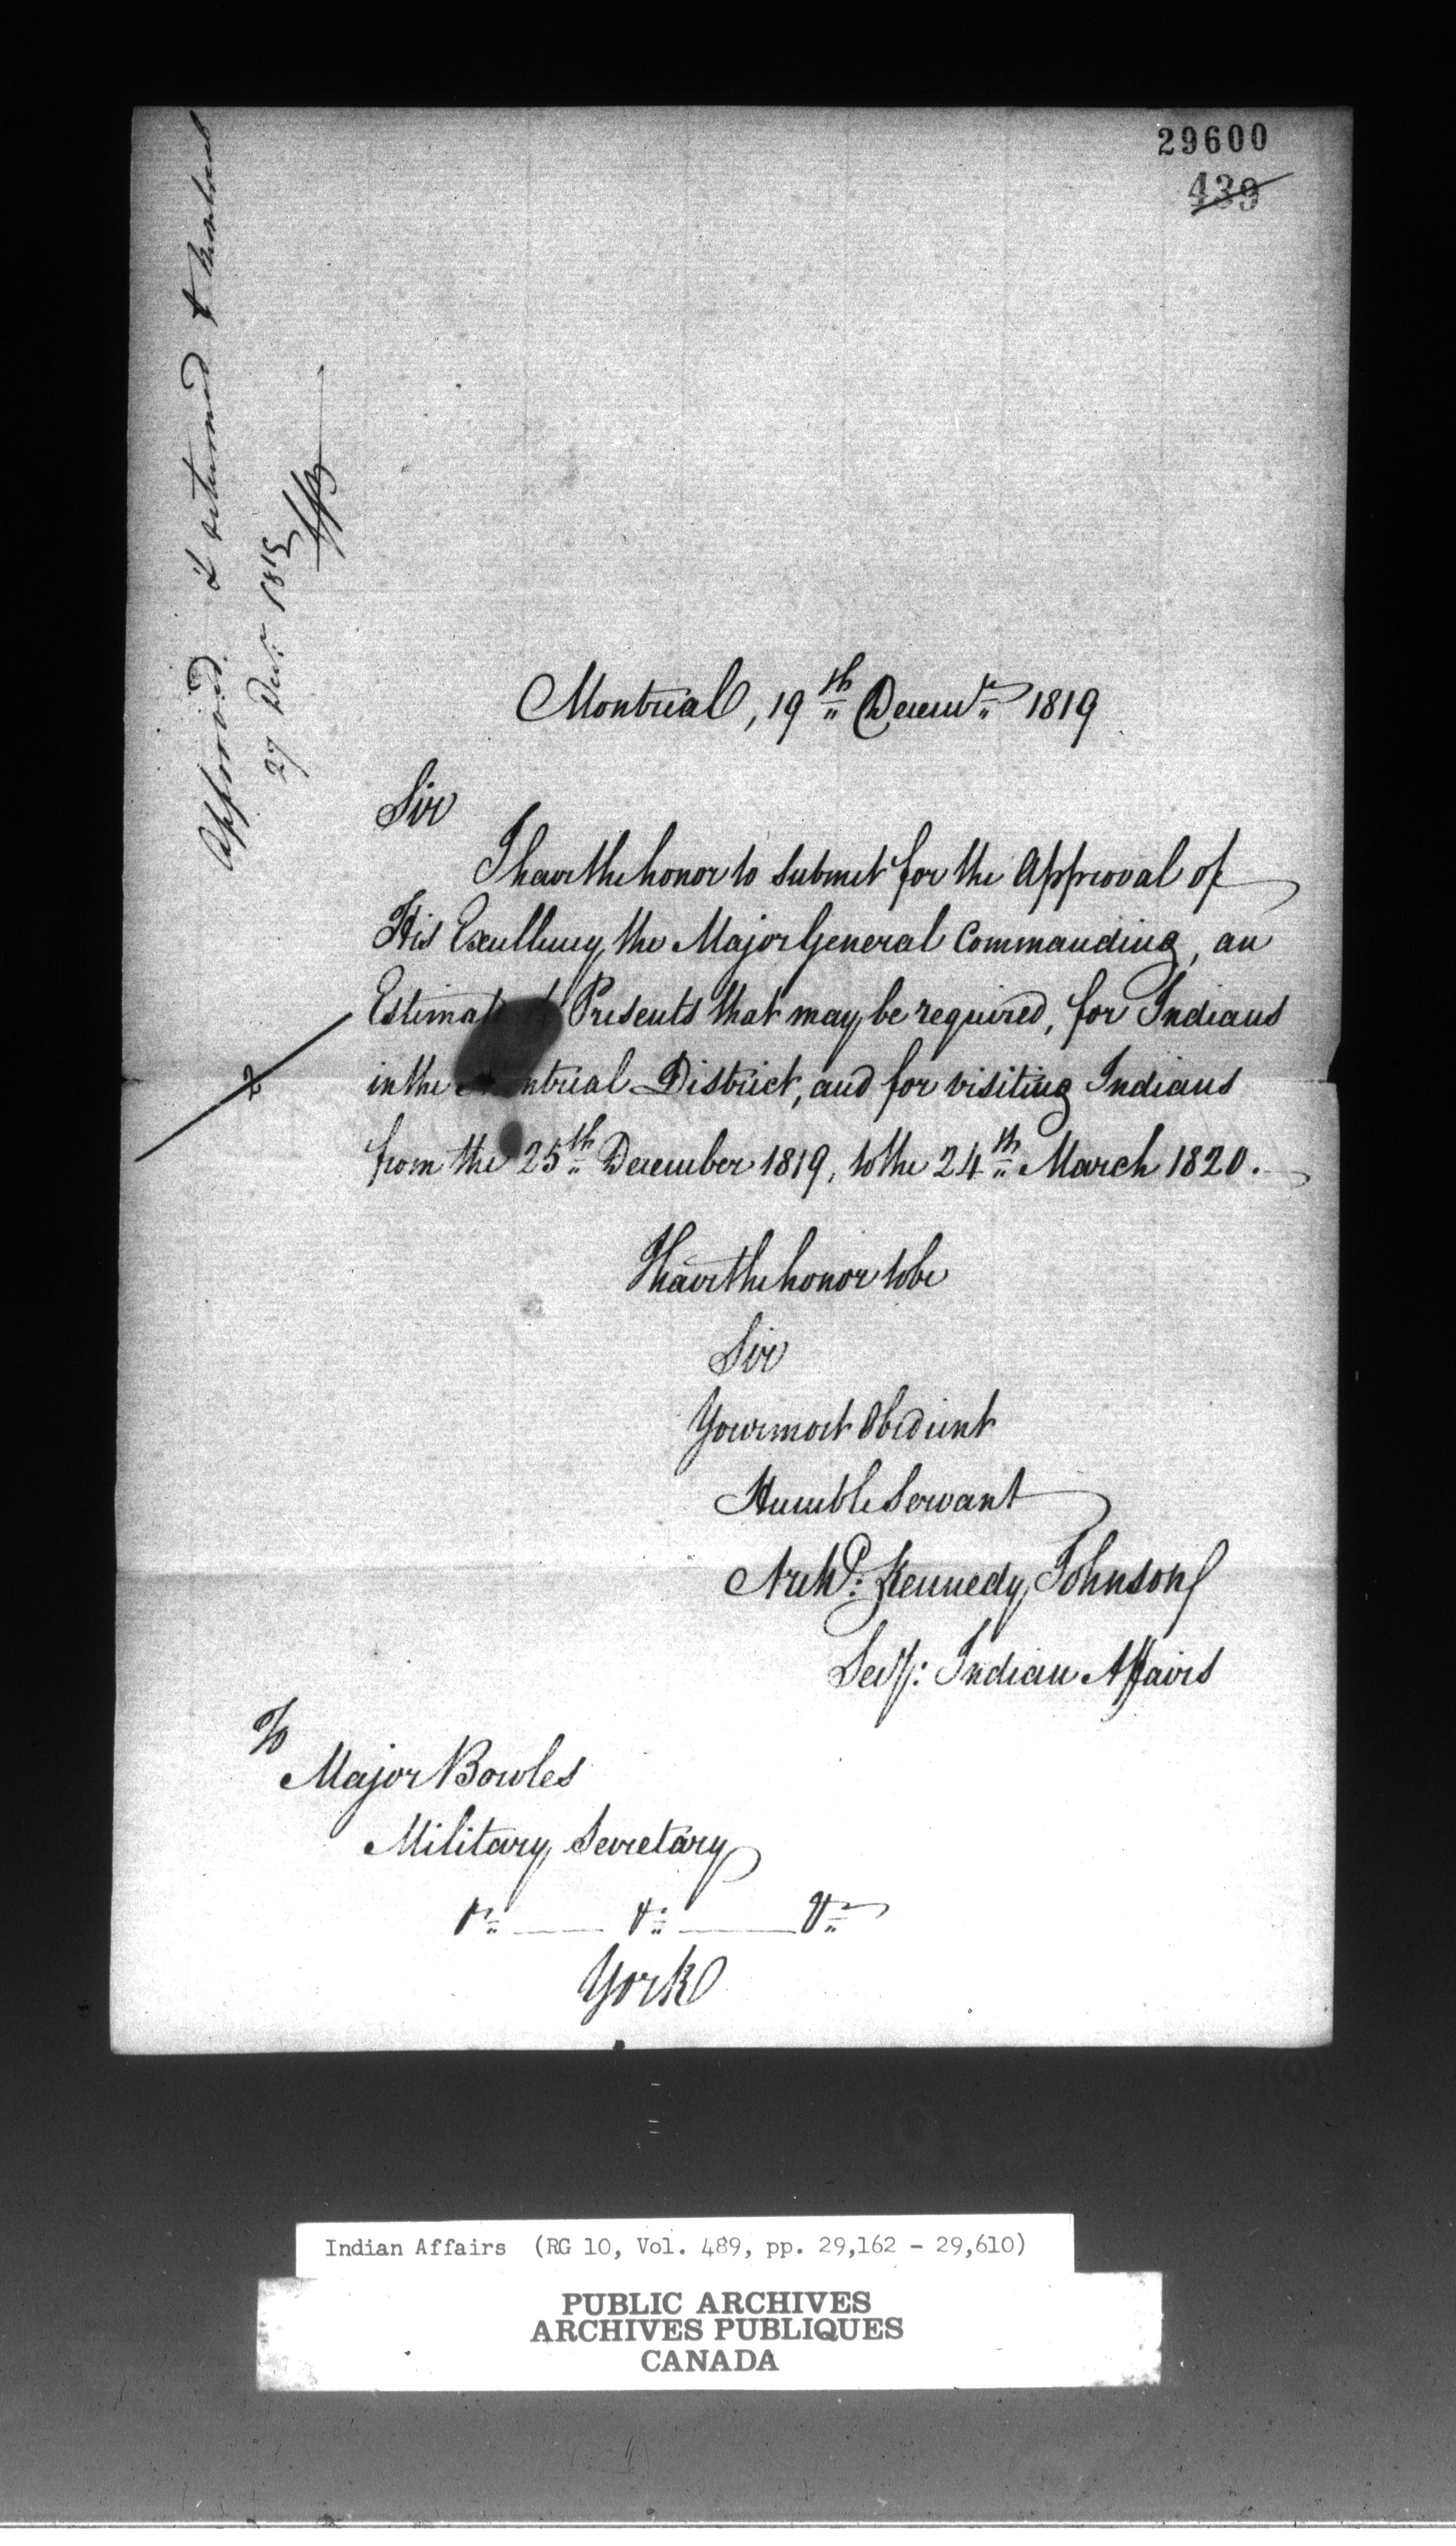 29600
439
Approved & returned to Montreal
27 Decr. 1819
Montreal, 19th Decemr. 1819
Sir
I have the honor to submit for the Approval of
His Excellency, the Major General Commanding, an
Estimate of Presents that may be required, for Indians
in the Montreal District, and for visiting Indians
from the 25th December 1819, to the 24th March 1820.
I have the honor to be
Sir
Your most Obedient
Humble Servant
Archd: Kennedy Johnson
Secy: Indian Affairs
To
Major Bowles
Military Secretary
&c &c &c
York
Indian Affairs (RG 10, Vol. 489, pp. 29,162 - 29,610)
PUBLIC ARCHIVES
ARCHIVES PUBLIQUES
CANADA